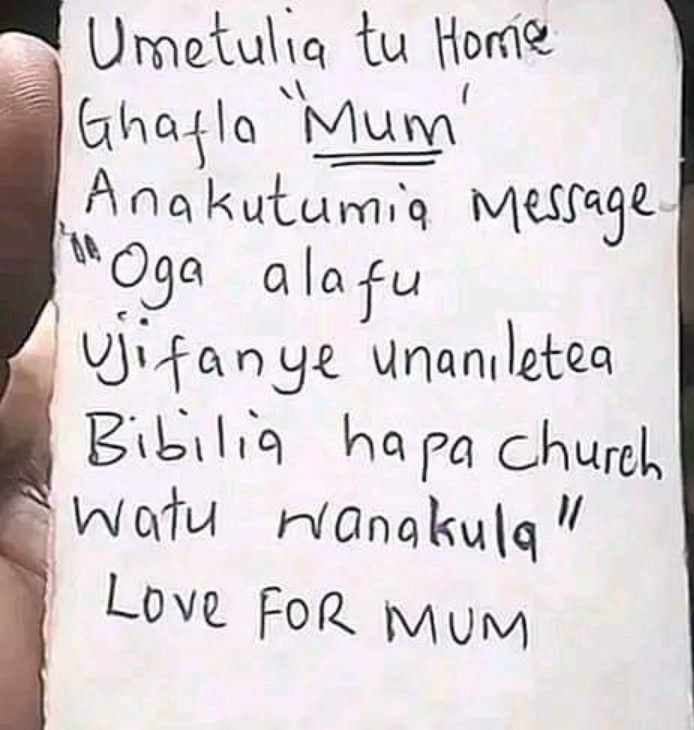 Umetulia tu Home
Ghafla "Mum'
Anakutumia Message
"Oga alafu
Ujifanye unaniletea
Bibilia hapa church
Watu wanakula"
LOVE FOR MUM